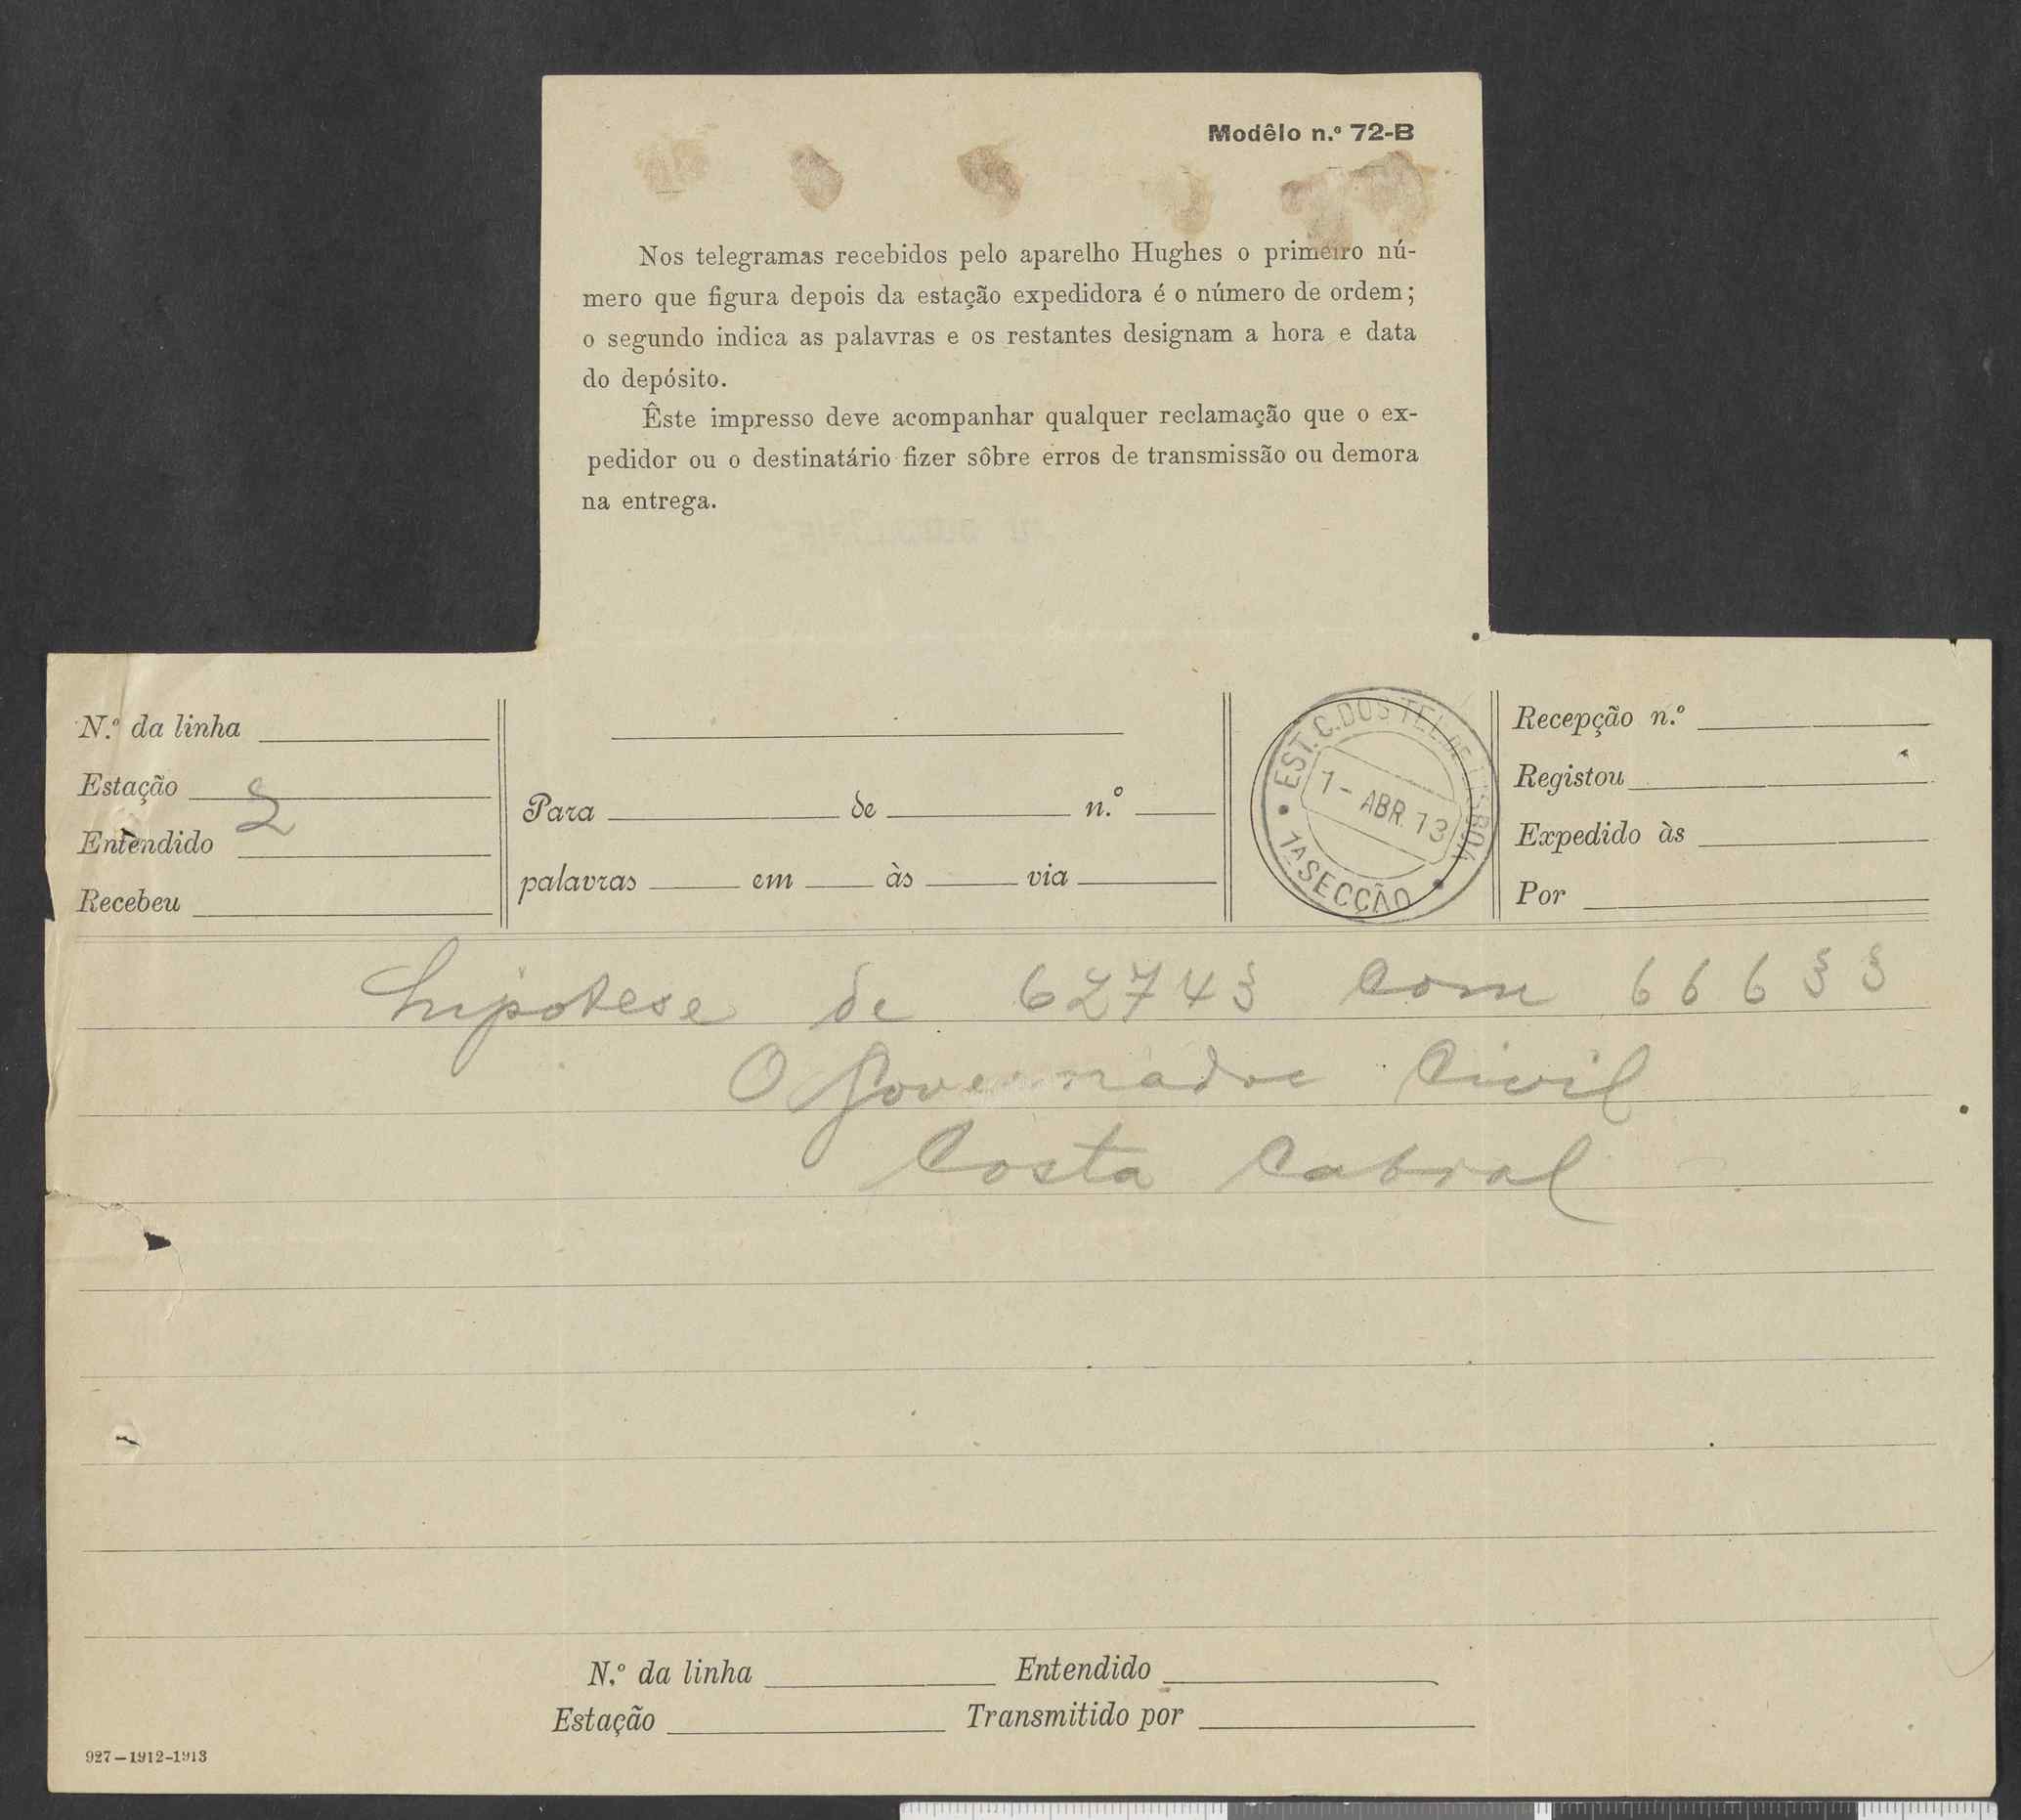 Modêlo n.º 72-B
Nos telegramas recebidos pelo aparelho Hughes o primeiro nú-
mero que figura depois da estação expedidora é o número de ordem;
o segundo indica as palavras e os restantes designam a hora e data
do depósito.
Êste impresso deve acompanhar qualquer reclamação que o ex-
pedidor ou o destinatário fizer sôbre erros de transmissão ou demora
na entrega.
N.º da linha
Estação
2
Entendido
Recebeu
Para de n.º
palavras em às via
EST. C. DOS TEL. DE LISBOA
1 - ABR. 13
1ª SECÇÃO
Recepção n.º
Registou
Expedido às
Por
hipotese de 62743 com 66633
O Governador Civil
Costa Cabral
N.º da linha Entendido
Estação Transmitido por
927-1912-1913